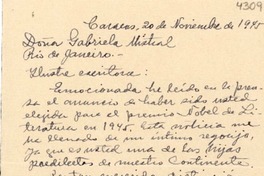 4309
Caracas, 20 de Noviembre de 1945
Doña Gabriela Mistral
Rio de Janeiro.-
Ilustre escritora:
Emocionada he leido en la pren-
sa el anuncio de haber sido usted
elejida para el premio Nobel de Li-
teratura en 1945. Esta noticia me
ha llenado de un intimo regocijo,
ya que es usted una de las hijas
predilectas de nuestro Continente.